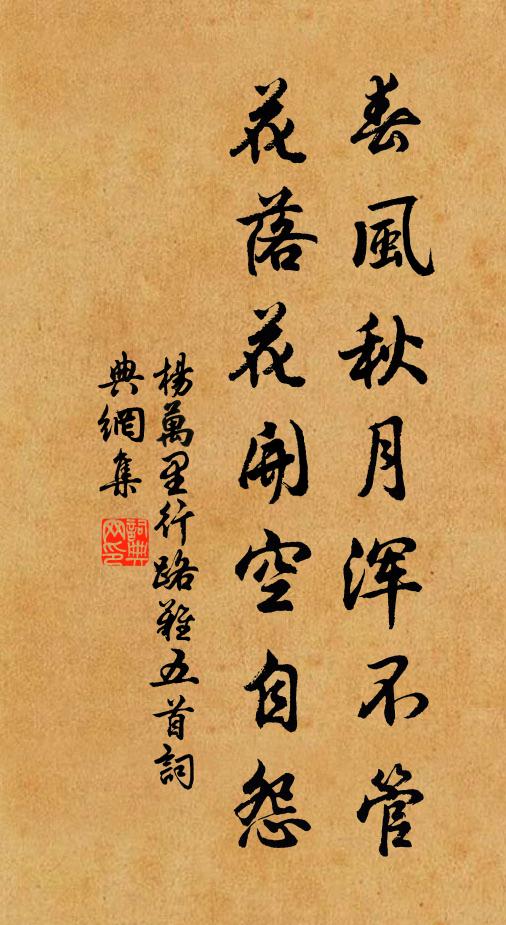 春風秋月渾不管
花落花開空自怨
楊萬里行路難五首詞
典網集
詞典网印